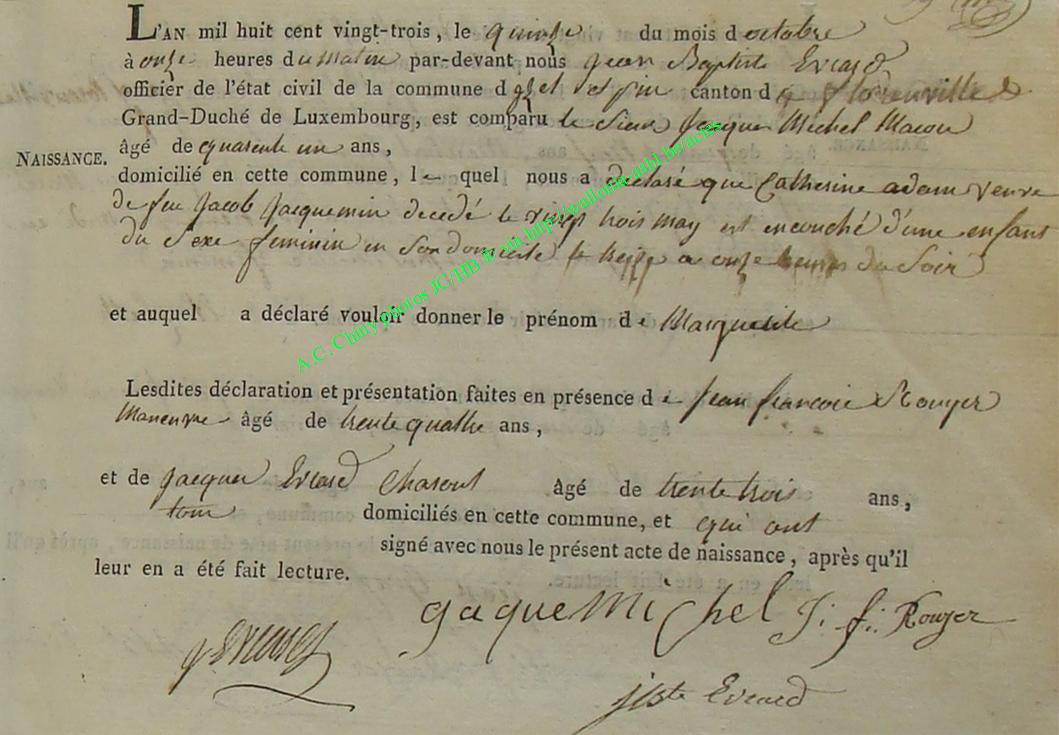 L'AN mil huit cent vingt-trois, le quinze du mois d octobre
à onze heures du matin par-devant nous Jean Baptiste Evrard
officier de l'état civil de la commune d canton d florenville
Grand-Duché de Luxembourg, est comparu le Sieur Jacque Michel Macon
NAISSANCE. âgé de quarente un ans,
domicilié en cette commune, le quel nous a declaré que Catherine adam veuve
de feu Jacob Jacquemin decedé le vingt trois may est encouché d'une enfant
du Sexe feminin en Son domicile le treize a onze heures du Soir
et auquel a déclaré vouloir donner le prénom de Marguerite
Lesdites déclaration et présentation faites en présence de Jean francoie Rouyer
Maneuvre âgé de trente quatre ans,
et de Jacque Evrard âgé de trente trois ans,
tous domiciliés en cette commune, et qui ont
signé avec nous le présent acte de naissance, après qu'il
leur en a été fait lecture.
gaque Michel J. f. Rouyer
Evrard
A.C. Chiny photos JC/HB